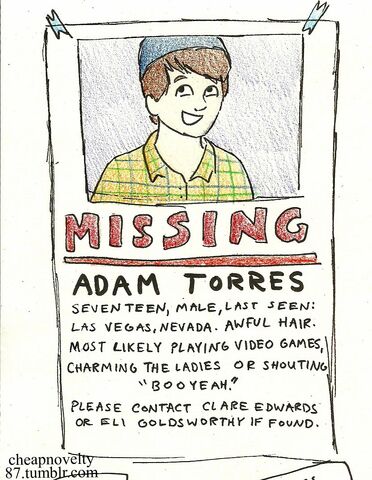 MISSING
ADAM TORRES
SEVENTEEN, MALE, LAST SEEN:
LAS VEGAS, NEVADA. AWFUL HAIR.
MOST LIKELY PLAYING VIDEO GAMES,
CHARMING THE LADIES OR SHOUTING
"BOOYEAH."
PLEASE CONTACT CLARE EDWARDS
OR ELI GOLDSWORTHY IF FOUND.
cheapnovelty
87.tumblr.com